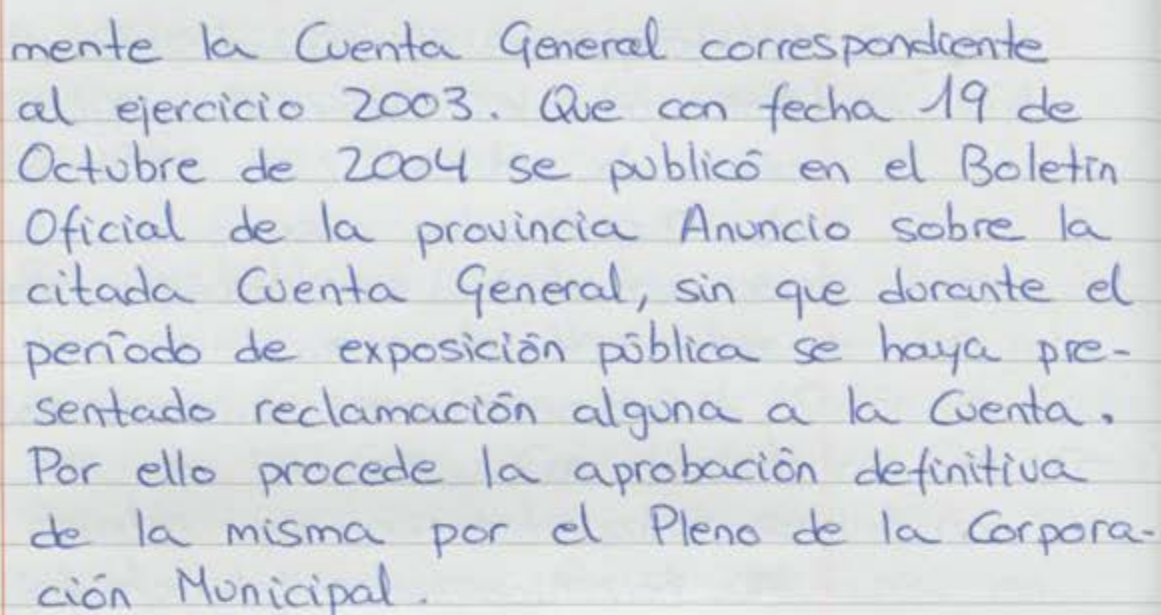 mente la Cuenta General correspondiente
al ejercicio 2003. Que con fecha 19 de
Octubre de 2004 se publicó en el Boletín
Oficial de la provincia Anuncio sobre la
citada Cuenta General, sin que durante el
período de exposición pública se haya pre-
sentado reclamación alguna a la Cuenta.
Por ello procede la aprobación definitiva
de la misma por el Pleno de la Corpora-
ción Municipal.